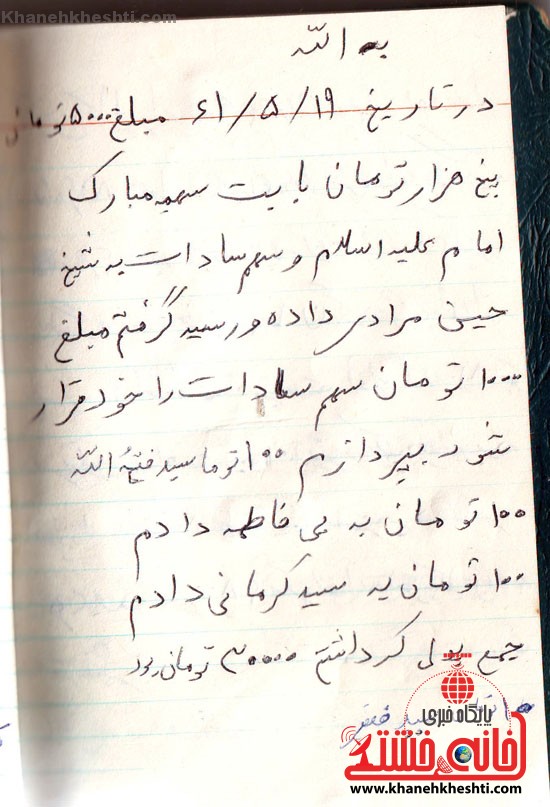 Khanehkheshti.com
به الله
در تاریخ ۶۱/۵/۱۹ مبلغ ۵۰۰۰ تومانی
پنج هزار تومان بابت سهم مبارک
امام علیه اسلام و سهم سادات به شیخ
حسین مرادی داده و رسید گرفتم مبلغ
۱۰۰۰ تومان سهم سادات را خود قرار
شد بپردازم ۱۰۰ توما سید فتح الله
۱۰۰ تومان به بی فاطمه دادم
۱۰۰ تومان به سید کرمانی دادم
جمع پولی که داشتم ۳۰۰۰۰ تومان بود
سید
پایگاه خبری
خانه خشتی
www.khanehkheshti.com